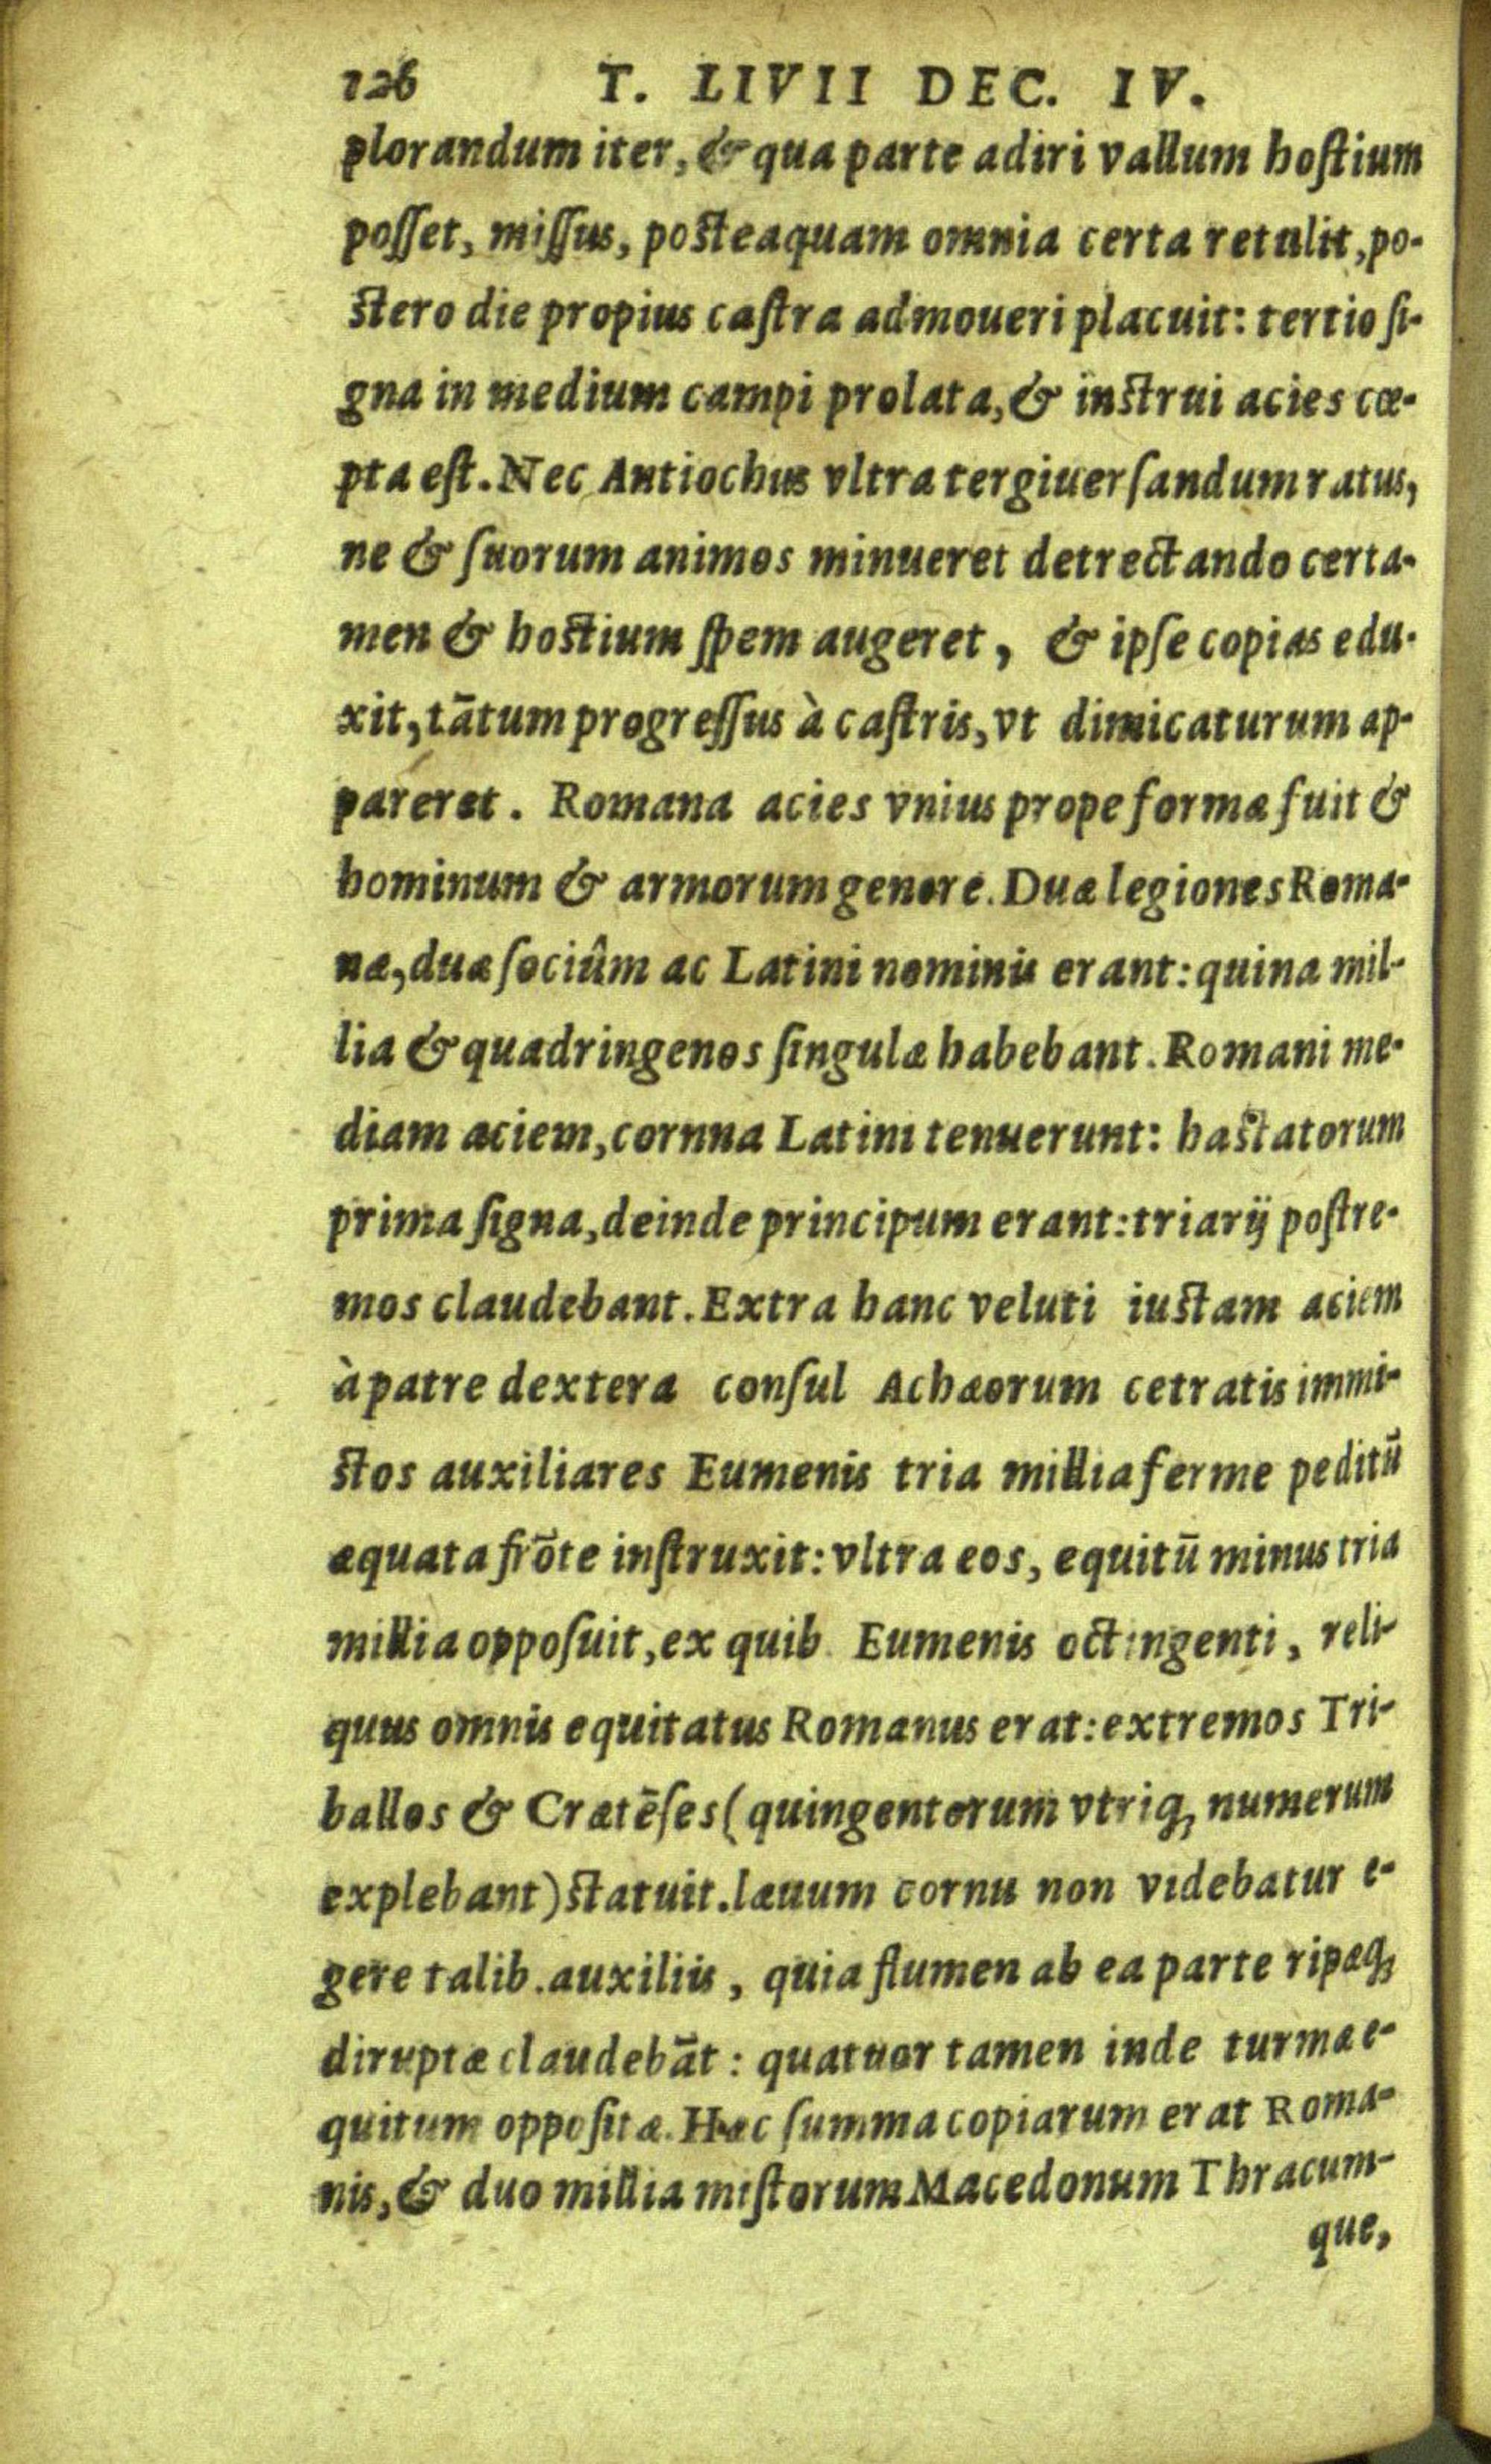 126 T. LIVII DEC. IV.
plorandum iter, & qua parte adiri vallum hoſtium
poſſet, miſſus, poſteaquam omnia certa retulit, po-
ſtero die propius caſtra admoueri placuit: tertio ſi-
gna in medium campi prolata, & inſtrui acies cœ-
pta eſt. Nec Antiochus vltra tergiuerſandum ratus,
ne & ſuorum animos minueret detrectando certa-
men & hoſtium ſpem augeret, & ipſe copias edu-
xit, tātum progreſſus à caſtris, vt dimicaturum ap-
pareret. Romana acies vnius prope formæ fuit &
hominum & armorum genere. Duæ legiones Roma-
næ, duæ ſociûm ac Latini nominis erant: quina mil-
lia & quadringenos ſingulæ habebant. Romani me-
diam aciem, cornna Latini tenuerunt: haſtatorum
prima ſigna, deinde principum erant: triarij poſtre-
mos claudebant. Extra hanc veluti iuſtam aciem
à patre dextera conſul Achæorum cetratis immi-
ſtos auxiliares Eumenis tria millia ferme peditū
æquata frōte inſtruxit: vltra eos, equitū minus tria
millia oppoſuit, ex quib. Eumenis octingenti, reli-
quus omnis equitatus Romanus erat: extremos Tri-
ballos & Cratēſes (quingentorum vtriq; numerum
explebant) ſtatuit. læuum cornu non videbatur e-
gere talib. auxiliis, quia flumen ab ea parte ripæq;
diruptæ claudebāt: quatuor tamen inde turmæ e-
quitum oppoſitæ. Hæc ſumma copiarum erat Roma-
nis, & duo millia miſtorum Macedonum Thracum-
que,